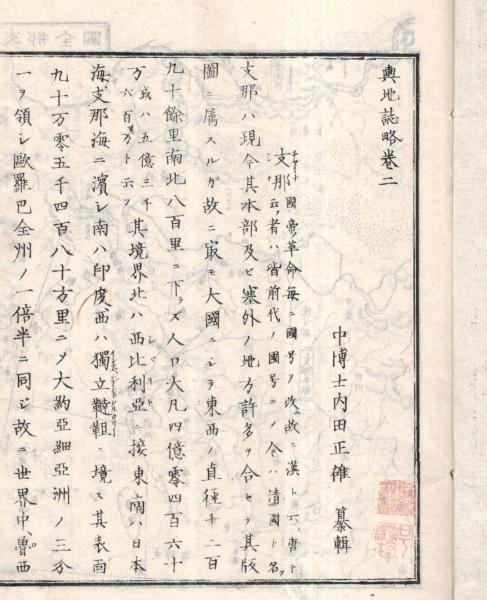 輿地誌略巻二
中博士内田正雄 纂輯
支那 国帝革命毎ニ国号ヲ改ム故ニ漢ト云唐ト
云フ者ハ皆前代ノ国号ニメ今ハ清国ト名ク
支那ハ現今其本部及ビ塞外ノ地方許多ヲ合セテ其版
圖ニ属スルガ故ニ最モ大國ニシテ東西ノ直径千二百
九十餘里南北八百里ニ下ラズ人口大凡四億零四百六十
万 或ハ五億三千六百万ト云フ 其境界北ハ西比利亞ニ接東南ハ日本
海支那海ニ濱シ南ハ印度西ハ獨立韃靼ニ境ス其表面
九十万零五千四百八十方里ニメ大約亞細亞洲ノ三分
一ヲ領シ歐羅巴全州ノ一倍半ニ同ジ故ニ世界中魯西